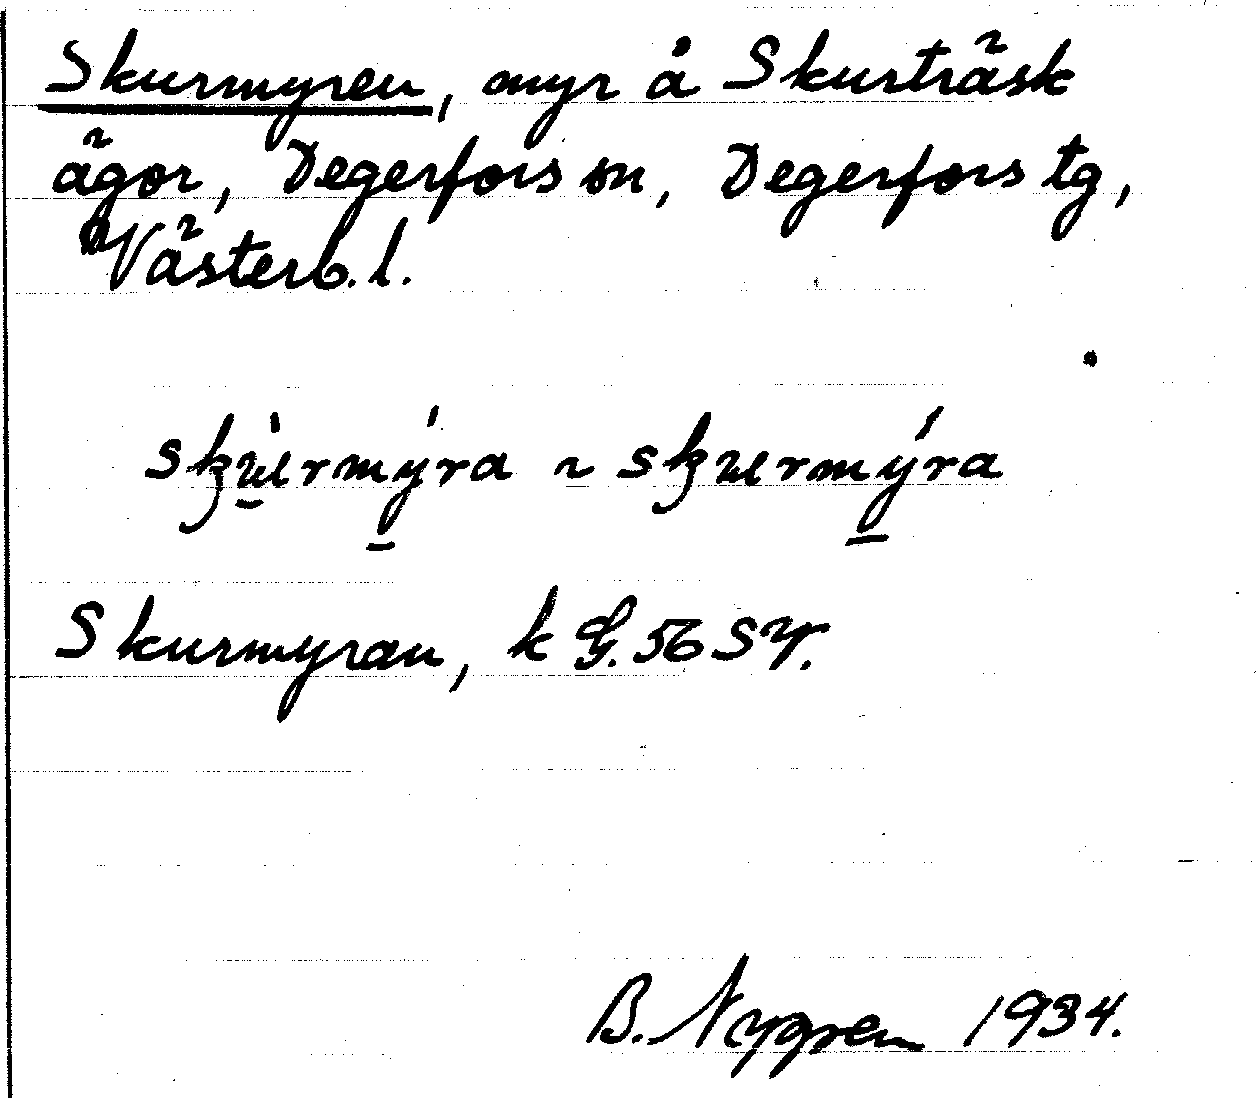 Skurmyren, myr å Skurträsk
ägor, Degerfors sn, Degerfors tg,
Västerb. l.
skurmýra ~ skurmýra
Skurmyran, k G. 56 SV.
B. Nygren 1934.